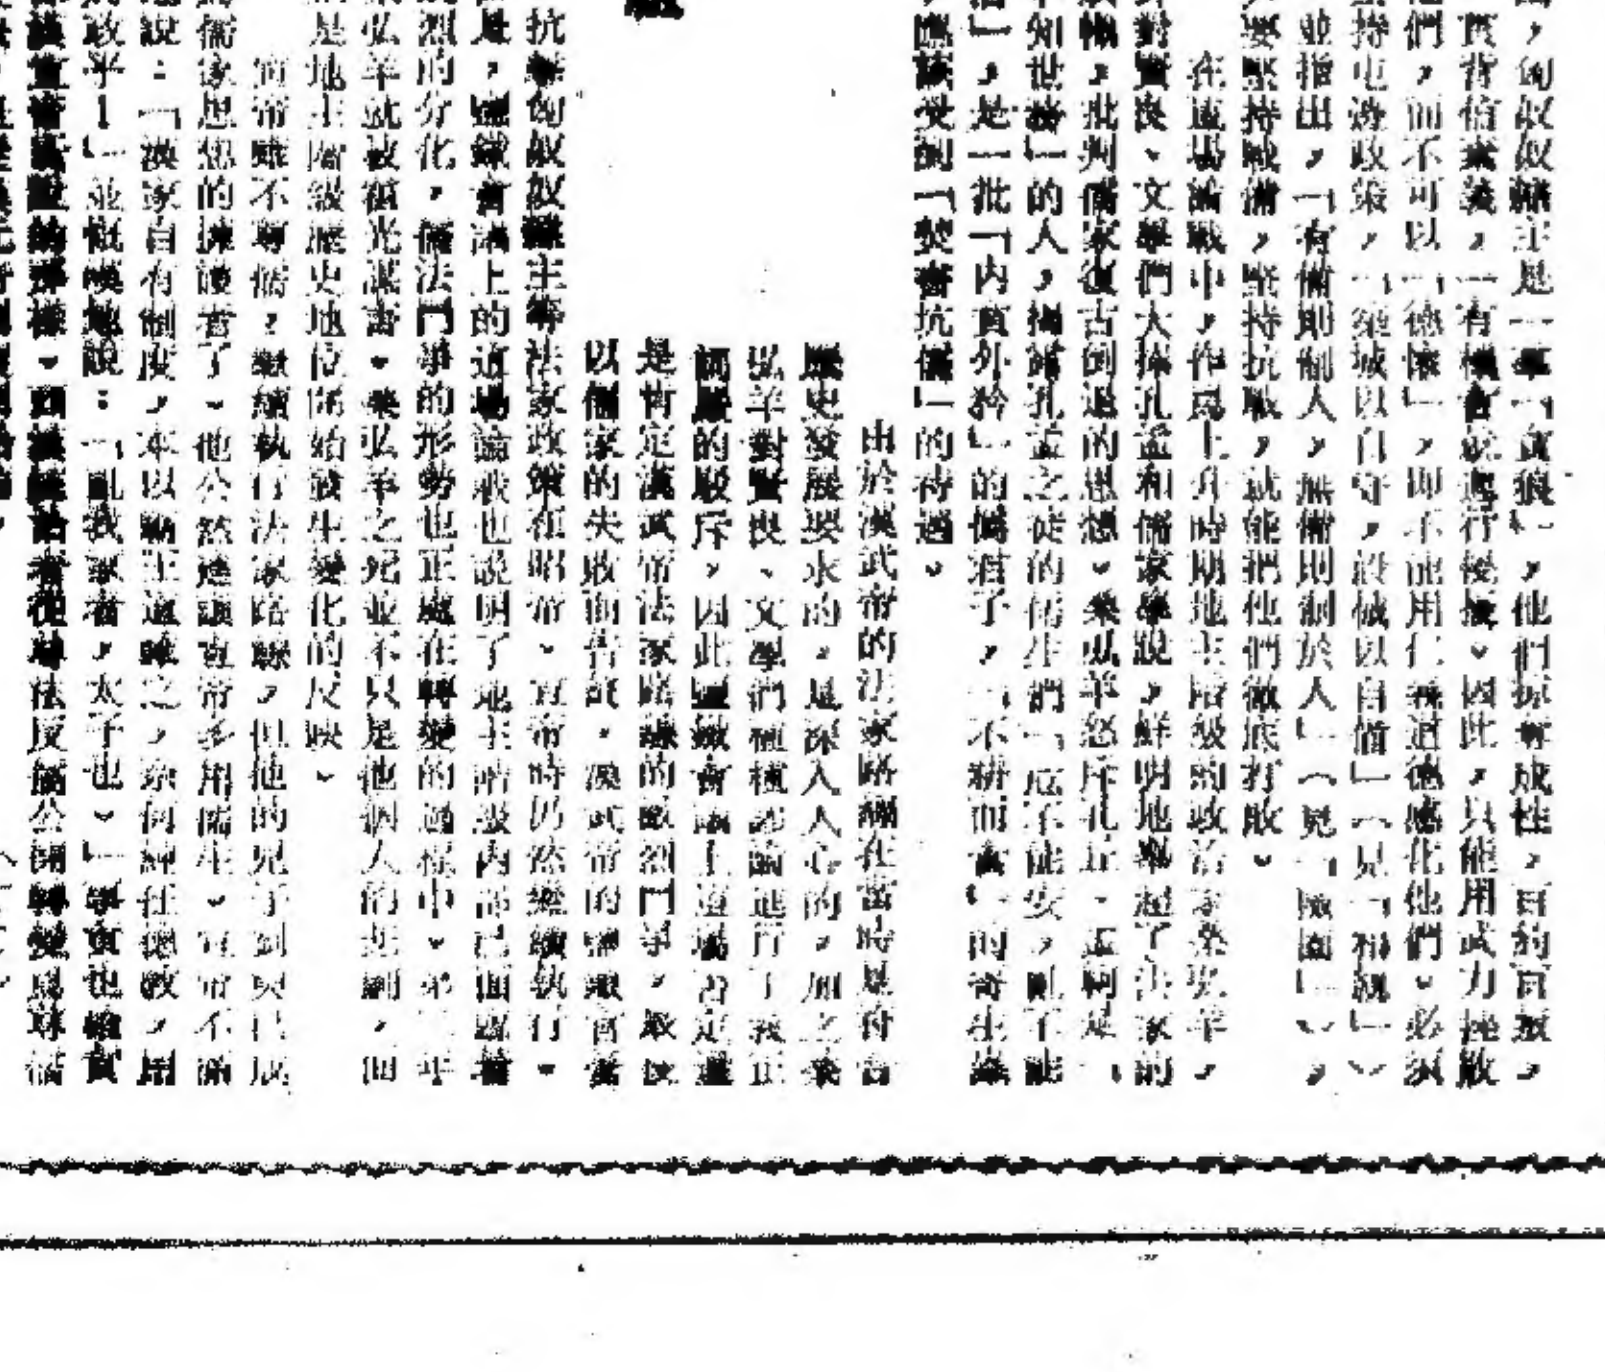 ，匈奴奴隸主是一羣「貪狼」，他們掠奪成性，百約百叛，
貫背信棄義，一有機會就進行侵擾。因此，只能用武力挫敗
他們，而不可以「德懷」，即不能用仁義道德感化他們。必須
堅持屯邊政策，「築城以自守，設械以自備」（見「和親」）
並指出，「有備則制人，無備則制於人」（見「險固」），
要堅持戰備，堅持抗戰，就能把他們徹底打敗。
在這場論戰中，作爲上升時期地主階級的政治家桑弘羊，
對賢良、文學們大捧孔孟和儒家學說，鮮明地舉起了法家的
旗幟，批判儒家復古倒退的思想。桑弘羊怒斥孔丘、孟軻是
不知世務」的人，揭露孔孟之徒的儒生們「危不能安，亂不能
治」，是一批「內貪外矜」的僞君子，「不耕而食」的寄生蟲
，應該受到「焚書坑儒」的待遇。
由於漢武帝的法家路線在當時是符合
歷史發展要求的，是深入人心的，加之桑
弘羊對賢良、文學們種種謬論進行了義正
詞嚴的駁斥，因此鹽鐵會議上這場否定還
是肯定漢武帝法家路線的激烈鬥爭，最後
以儒家的失敗而告終。漢武帝的鹽鐵官營
抗擊匈奴奴隸主等法家政策在昭帝、宣帝時仍然繼續執行。
但是，鹽鐵會議上的這場論戰也說明了地主階級內部已面臨着
劇烈的分化，儒法鬥爭的形勢也正處在轉變的過程中。第二年
桑弘羊就被霍光謀害。桑弘羊之死並不只是他個人的悲劇，而
是地主階級歷史地位開始發生變化的反映。
宣帝雖不尊儒，繼續執行法家路線，但他的兒子劉奭已成
爲儒家思想的擁護者了。他公然建議宣帝多用儒生。宣帝不滿
地說：「漢家自有制度，本以霸王道雜之，奈何純任德教，用
周政乎！」並慨嘆地說：「亂我家者，太子也。」事實也確實